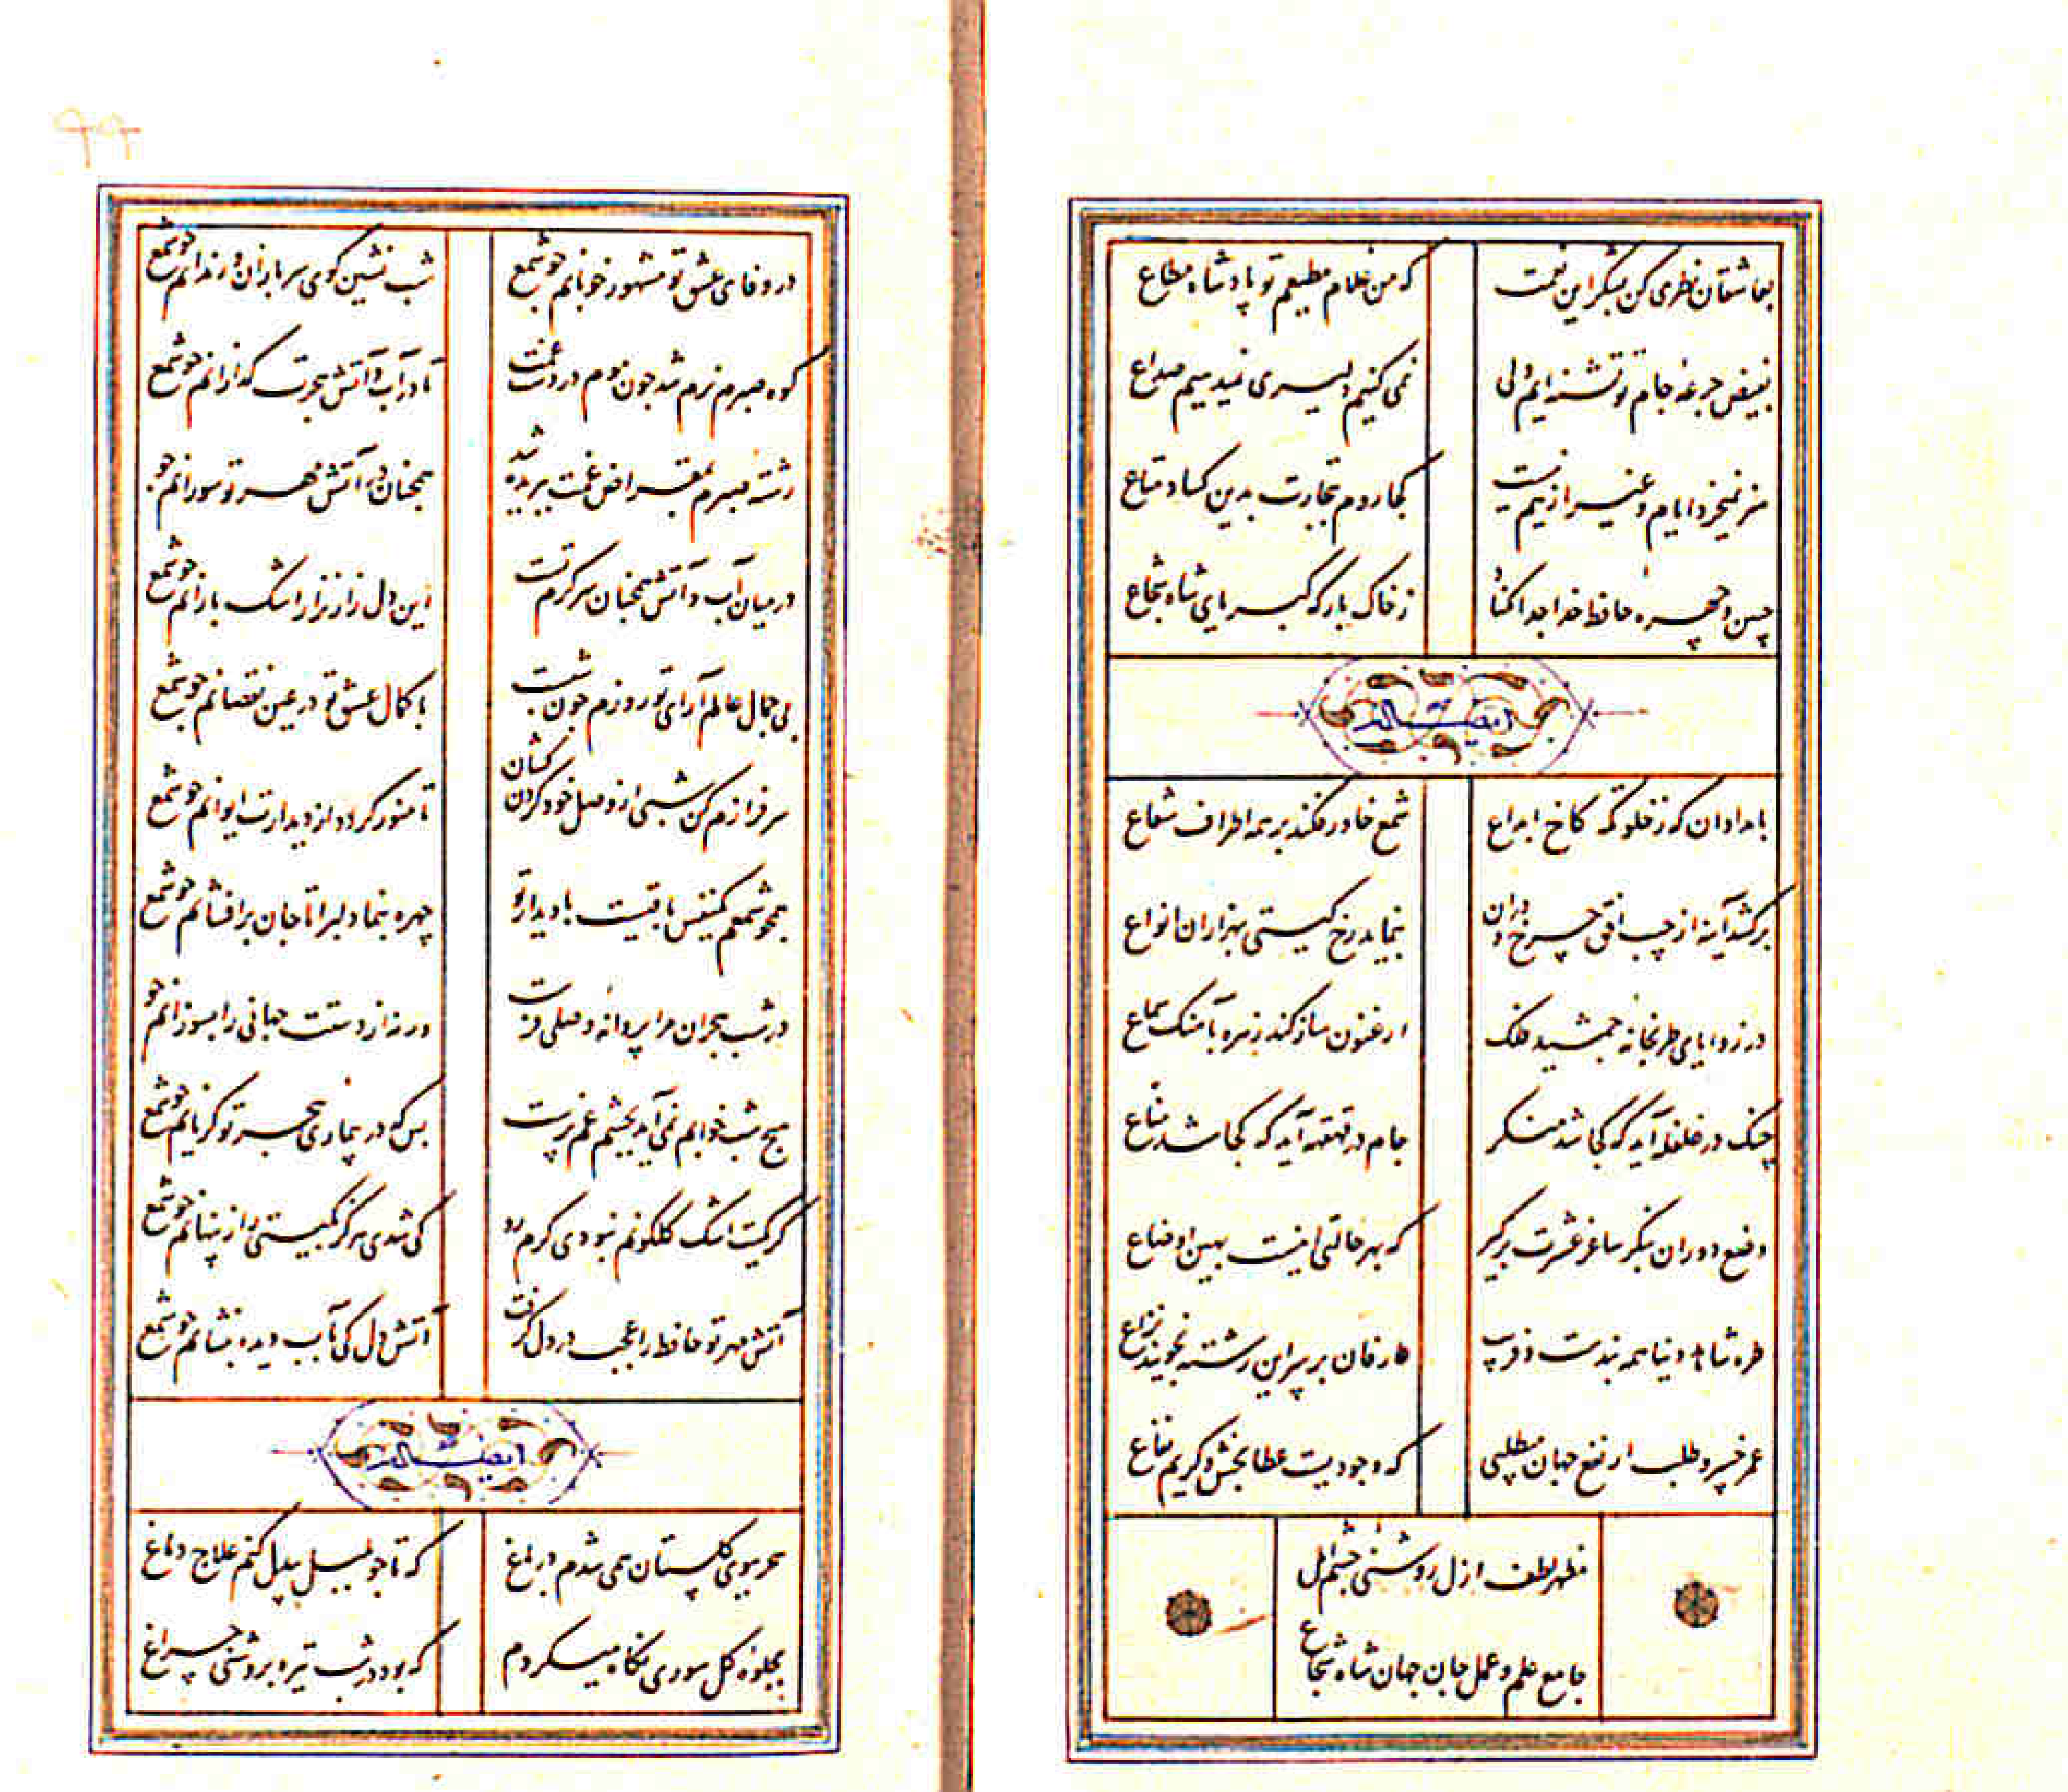 بعاشقان نظری کن بشکر این نعمت که من غلام مطیعم تو پادشاه مطاع
بفیض جرعه جام تو تشنه ایم ولی نمی کنیم دلیری نمیدهیم صداع
هنر نمیخرد ایام و غیر ازینم نیست کجا روم بتجارت بدین کساد متاع
جبین و چهره حافظ خدا جدا کناد ز خاک بارگه کبریای شاه شجاع
ایضا له
بامدادان که ز خلوتگه کاخ ابداع شمع خاور فکند بر همه اطراف شعاع
برکشد آینه از جیب افق چرخ و دران بنماید رخ گیتی بهزاران انواع
در زوایای طربخانه جمشید فلک ارغنون ساز کند زهره بآهنگ سماع
چنگ در غلغله آید که کجا شد منکر جام در قهقهه آید که کجا شد مناع
وضع دوران بنگر ساغر عشرت برگیر که بهر حالتی اینست بهین اوضاع
طره شاهد دنیا همه بندست و فریب عارفان بر سر این رشته نجویند نزاع
عمر خسرو طلب ار نفع جهان میطلبی که وجودیست عطابخش و کریم نفاع
مظهر لطف ازل روشنی چشم امل
جامع علم و عمل جان جهان شاه شجاع
۹۹
در وفای عشق تو مشهور خوبانم چو شمع شب نشین کوی سربازان و رندانم چو شمع
کوه صبرم نرم شد چون موم در دست غمت تا در آب و آتش هجرت گدازانم چو شمع
رشته صبرم بمقراض غمت ببریده شد همچنان در آتش مهر تو سوزانم چو
در میان آب و آتش همچنان سرگرم تست این دل زار نزار اشک بارانم چو شمع
بی جمال عالم آرای تو روزم چون شبست با کمال عشق تو در عین نقصانم چو شمع
سرفرازم کن شبی از وصل خود گردن کشان تا منور گردد از دیدارت ایوانم چو شمع
همچو شمعم یکنفس باقیست با دیدار تو چهره بنما دلبرا تا جان برافشانم چو شمع
در شب هجران مرا پروانه وصلی فرست ورنه از دستت جهانی را بسوزانم چو
هیچ شب خوابم نمی آید بچشم غم پرست بس که در بیماری هجر تو گریانم چو شمع
گر کمیت اشک گلگونم نبودی گرم رو کی شدی هرگز بگیتی راز پنهانم چو شمع
آتش مهر تو حافظ را عجب در دل گرفت آتش دل کی بآب دیده بنشانم چو شمع
ایضا له
سحر ببوی گلستان همی شدم در باغ که تا چو بلبل بیدل کنم علاج دماغ
بجلوه گل سوری نگاه میکردم که بود در شب تیره بروشنی چراغ